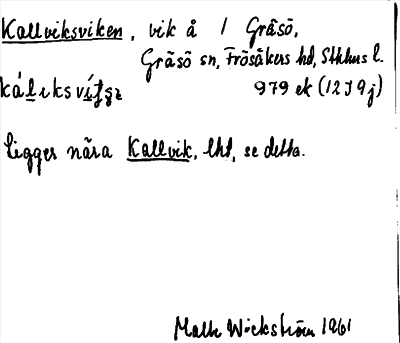 Kallviksviken, vik å 1 Gräsö,
Gräsö sn, Frösåkers hd, Sthlms l.
979 ek (12J9j)
ligger nära Kallvik, lht, se detta.
Malte Wickström 1961